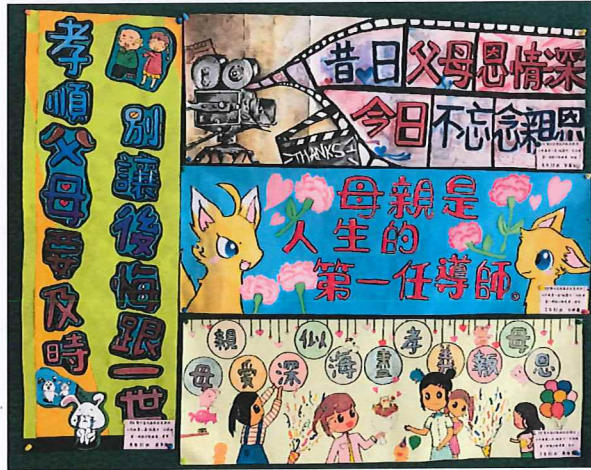 孝順父母要及時
別讓後悔跟一世
昔日父母恩情深
今日不忘念親恩
THANKS
母親是
人生的
第一任導師。
母親愛深似海重孝義報母恩